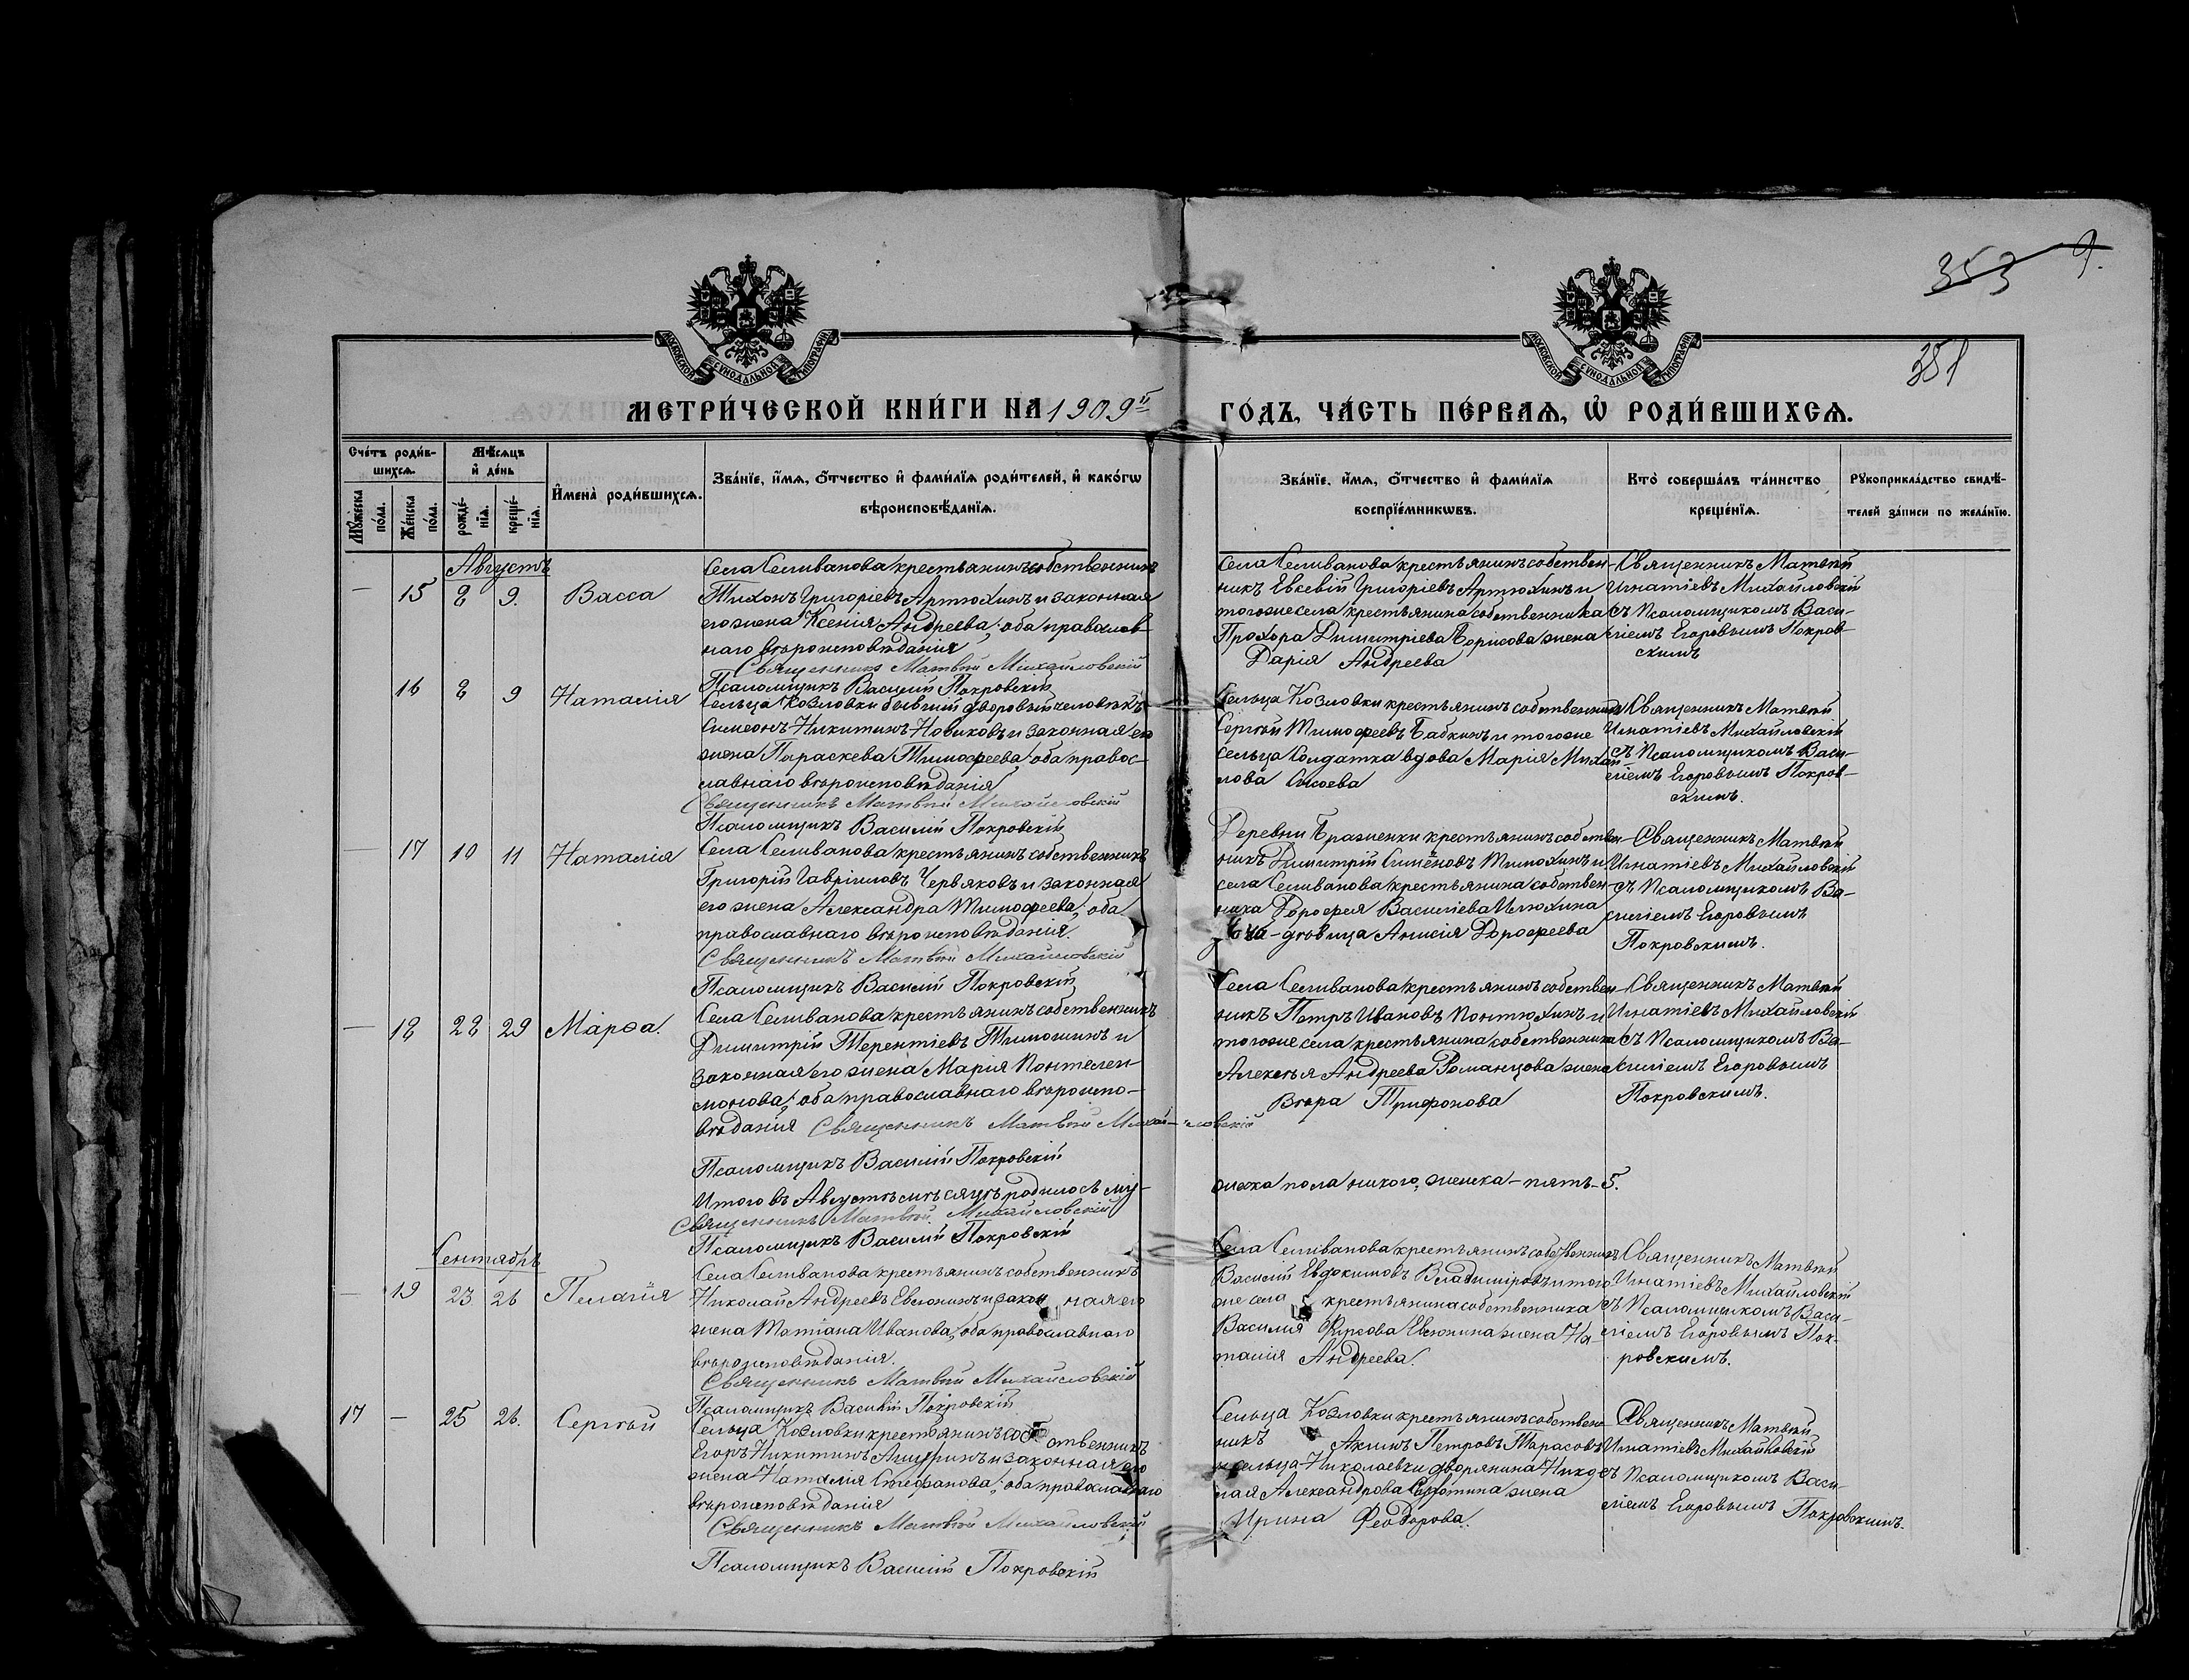 353 9.
351
МОСКОВСКОЙ СѴНОДАЛЬНОЙ ТИПОГРАФІИ
МОСКОВСКОЙ СѴНОДАЛЬНОЙ ТИПОГРАФІИ
МЕТРИ́ЧЕСКОЙ КНИ́ГИ НА 1909й ГО́ДЪ, ЧА́СТЬ ПЕ́РВАѦ, Ѽ РОДИ́ВШИХСѦ.
Сче́тъ роди́в-
шихсѧ.
Мꙋ́жеска по́ла.
Же́нска по́ла.
Мѣ́сѧцъ
и҆ де́нь
рожде́-
нїѧ.
креще́-
нїѧ.
И҆мена̀ роди́вшихсѧ.
Зва́нїе, и҆́мѧ, ѻ҆́тчество и҆ фами́лїѧ роди́телей, и҆ како́гѡ
вѣроисповѣ́данїѧ.
Зва́нїе, и҆́мѧ, ѻ҆́тчество и҆ фами́лїѧ
воспрїе́мникѡвъ.
Кто̀ соверша́лъ та́инство
креще́нїѧ.
Рꙋкоприкла́дство свидѣ́-
телей за́писи по жела́нїю.
Августъ
— 15 8 9. Васса
Села Селиванова крестьянинъ собственникъ
Тихонъ Григорьевъ Артюхинъ и законная
его жена Ксенія Андреева; оба православ
наго вѣроисповѣданія
Священникъ Матвѣй Михайловскій
Псаломщикъ Василій Покровскій
Села Селиванова крестьянинъ собствен-
никъ Евсевій Григорьевъ Артюхинъ и
тогоже села крестьянина собственника
Прохора Димитріева Борисова жена
Дарія Андреева
Священникъ Матвѣй
Игнатіевъ Михайловскій
съ Псаломщикомъ Васи-
ліемъ Егоровымъ Покров-
скимъ
16 8 9 Наталія
Сельца Козловки бывшій дворовый человѣкъ
Симеонъ Никитинъ Новиковъ и законная его
жена Параскева Тимофеева; оба правос-
лавнаго вѣроисповѣданія
Священникъ Матвѣй Михайловскій
Псаломщикъ Василій Покровскій
Сельца Козловки крестьянинъ собственникъ
Сергѣй Тимофеевъ Бабкинъ и тогоже
сельца солдатка вдова Марія Михай
лова Сысоева
Священникъ Матвѣй
Игнатіевъ Михайловскій
съ Псаломщикомъ Васи-
ліемъ Егоровымъ Покров-
скимъ.
— 17 10 11 Наталія
Села Селиванова крестьянинъ собственникъ
Григорій Гавріиловъ Червяковъ и законная
его жена Александра Тимофеева, оба
православнаго вѣроисповѣданія.
Священникъ Матвѣй Михайловскій
Псаломщикъ Василій Покровскій
Деревни Браженки крестьянинъ собствен-
никъ Димитрій Симеоновъ Тимохинъ и
села Селиванова крестьянина собствен-
ника Дорофея Василіева Илюхина
дѣвица Анисія Дорофеева
Священникъ Матвѣй
Игнатіевъ Михайловскій
съ Псаломщикомъ Ва-
силіемъ Егоровымъ
Покровскимъ.
— 18 28 29 Марѳа.
Села Селиванова крестьянинъ собственникъ
Димитрій Терентіевъ Тимошинъ и
законная его жена Марія Понтелеи-
монова; оба православнаго вѣроиспо-
вѣданія Священникъ Матвѣй Михай-ловскій
Псаломщикъ Василій Покровскій
Села Селиванова крестьянинъ собствен-
никъ Петръ Ивановъ Понтюхинъ и
тогоже села крестьянина собственника
Алексѣя Андреева Романцова жена
Вѣра Трифонова
Священникъ Матвѣй
Игнатіевъ Михайловскій
съ Псаломщикомъ Ва-
силіемъ Егоровымъ
Покровскимъ.
Итого въ Августѣ мѣсяцѣ родилось му-
жеска пола никого, женска – пять – 5.
Священникъ Матвѣй Михайловскій
Псаломщикъ Василій Покровскій
Сентябрь
— 19 23 26 Пелагія
Села Селиванова крестьянинъ собственникъ
Николай Андреевъ Евсюнинъ и закон ная его
жена Татіана Иванова, оба православнаго
вѣроисповѣданія.
Священникъ Матвѣй Михайловскій
Псаломщикъ Василій Покровскій
Села Селиванова крестьянинъ собственникъ
Василій Евдокимовъ Владиміровъ и того
же села крестьянина собственника
Василія Фирсова Евсюнина жена На-
талія Андреева.
Священникъ Матвѣй
Игнатіевъ Михайловскій
съ Псаломщикомъ Васи-
ліемъ Егоровымъ Пок-
ровскимъ.
17 — 25 26. Сергѣй
Сельца Козловки крестьянинъ собственникъ
Егоръ Никитинъ и законная его
жена Наталія Стефанова; оба православнаго
вѣроисповѣданія
Священникъ Матвѣй Михайловскій
Псаломщикъ Василій Покровскій
Сельца Козловки крестьянинъ собствен-
никъ Акимъ Петровъ Тарасовъ
и сельца Николаевки дворянина Нико
лая Александрова жена
Ирина Феодорова.
Священникъ Матвѣй
Игнатіевъ Михайловскій
съ Псаломщикомъ Васи-
ліемъ Егоровымъ Покровскимъ.